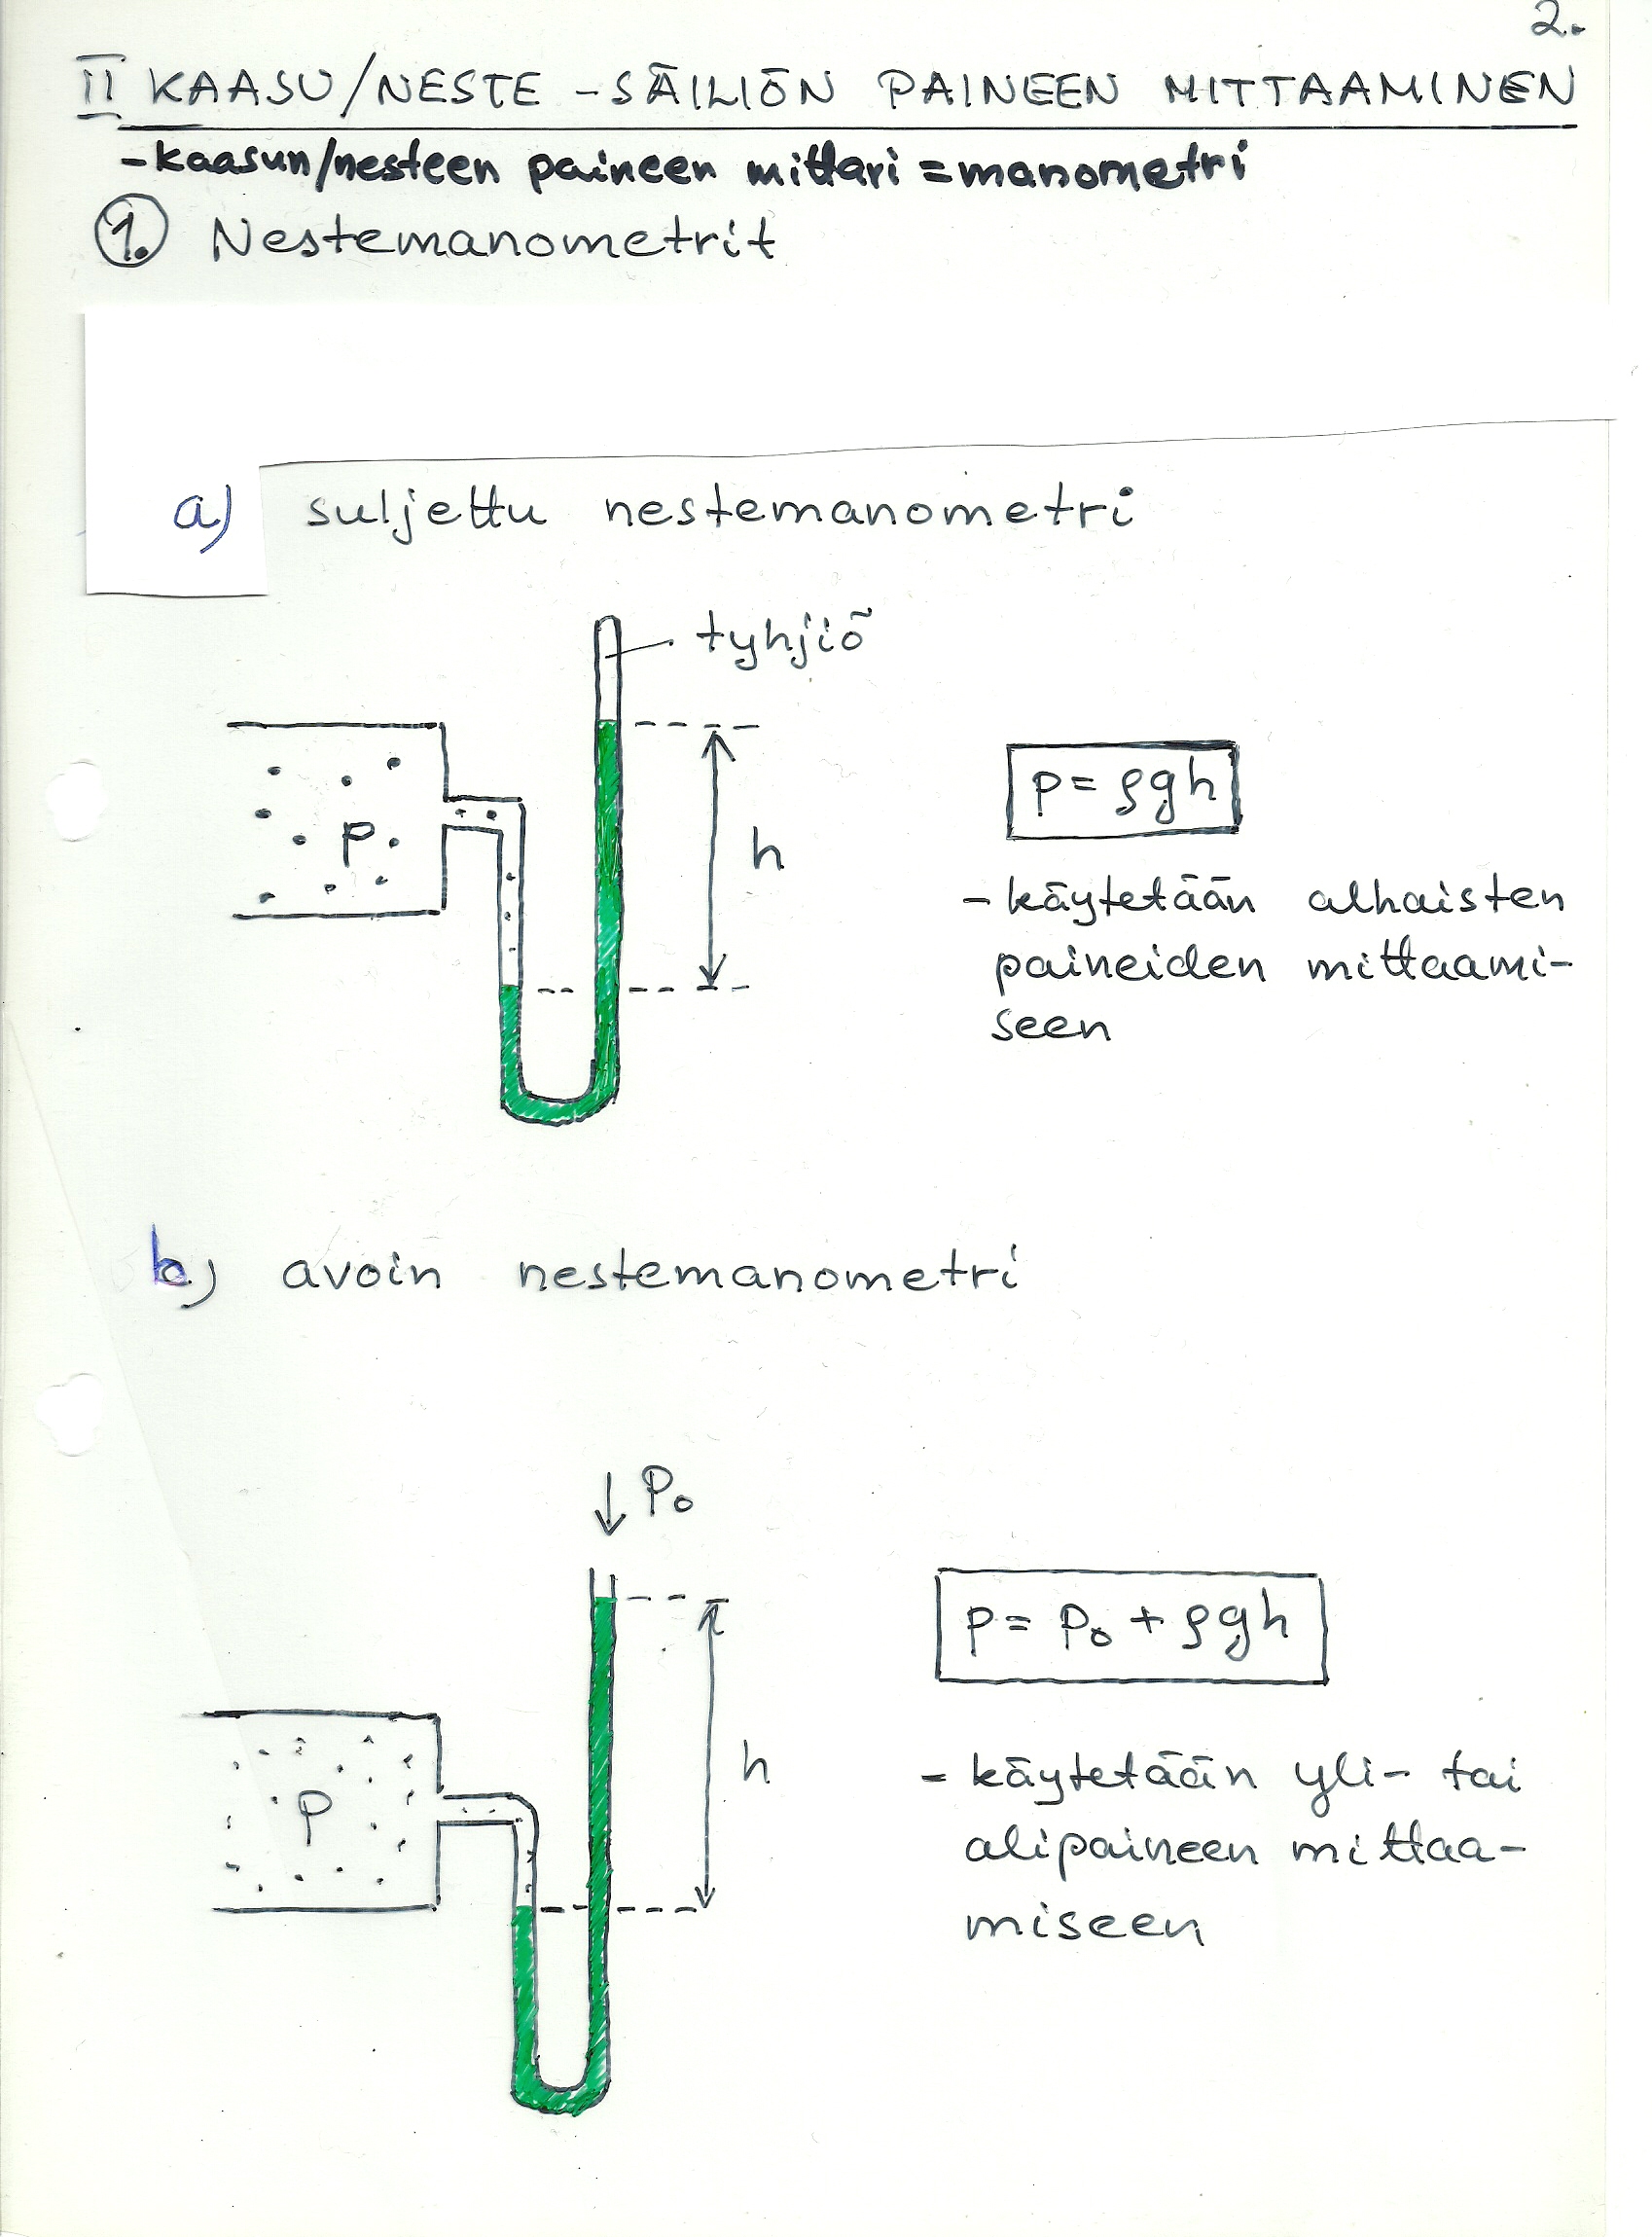 2.
II KAASU/NESTE -SÄILIÖN PAINEEN MITTAAMINEN
-kaasun/nesteen paineen mittari = manometri
1. Nestemanometrit
a) suljettu nestemanometri
tyhjiö
p
h
p = ρgh
- käytetään alhaisten
paineiden mittaami-
seen
b) avoin nestemanometri
↓ p₀
p = p₀ + ρgh
p
h
- käytetään yli- tai
alipaineen mittaa-
miseen